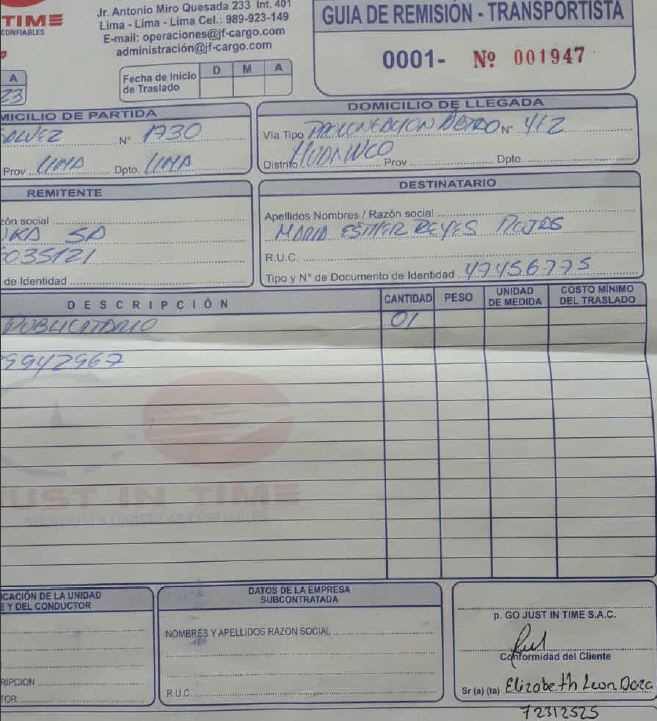 TIME
CONFIABLES
Jr. Antonio Miro Quesada 233 Int. 401
Lima - Lima - Lima Cel.: 989-923-149
E-mail: operaciones@jf-cargo.com
administración@jf-cargo.com
GUIA DE REMISIÓN - TRANSPORTISTA
0001- Nº 001947
A
23
Fecha de Inicio de Traslado D M A
MICILIO DE PARTIDA
Nº 1730
Prov LIMA Dpto. LIMA
DOMICILIO DE LLEGADA
Via Tipo Nº 412
Distrito HUANUCO Prov Dpto.
REMITENTE
zón social
SA
0035121
de Identidad
DESTINATARIO
Apellidos Nombres / Razón social
MARIA ESTHER REYES ROJAS
R.U.C.
Tipo y N° de Documento de Identidad 47456775
DESCRIPCIÓN CANTIDAD PESO UNIDAD DE MEDIDA COSTO MÍNIMO DEL TRASLADO
PUBLICITARIO 01
99942967
JUST IN TIME
ICACIÓN DE LA UNIDAD
E Y DEL CONDUCTOR
RIPCION
TOR
DATOS DE LA EMPRESA
SUBCONTRATADA
NOMBRES Y APELLIDOS RAZON SOCIAL
R.U.C.
p. GO JUST IN TIME S.A.C.
Conformidad del Cliente
Sr (a) (ta) Elizabeth Leon Daza
72312525